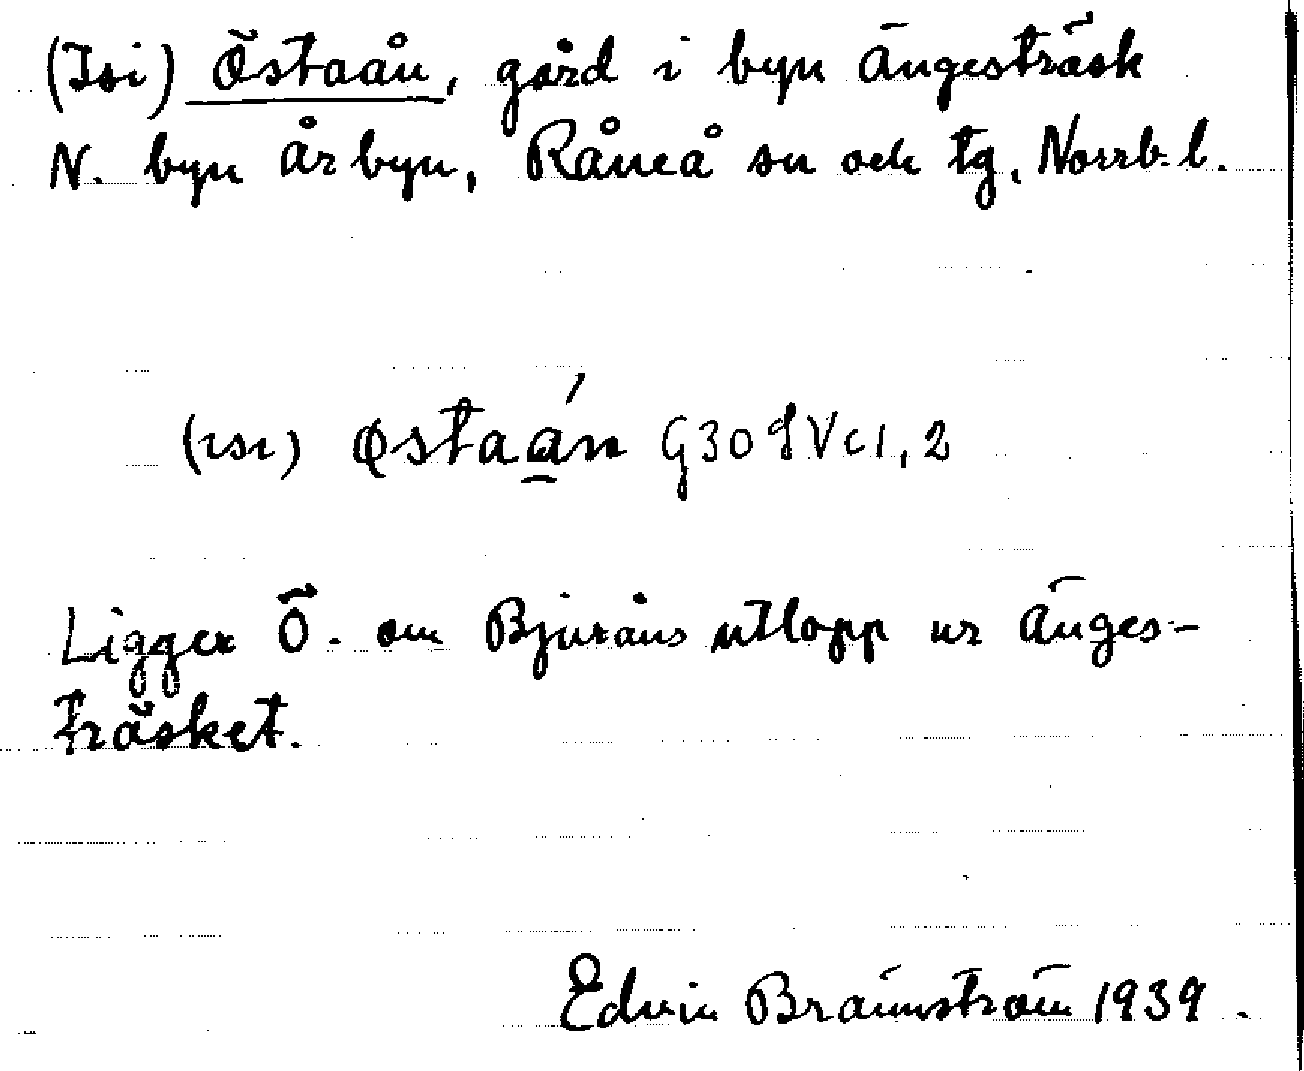 (Isi) Östaån, gård i byn Ängesträsk
N. byn Årbyn, Råneå sn och tg, Norrb. l.
(ısı) østaán G30 Vc1,2
Ligger Ö. om Bjuråns utlopp ur Änges-
träsket.
Edvin Brännström 1939.